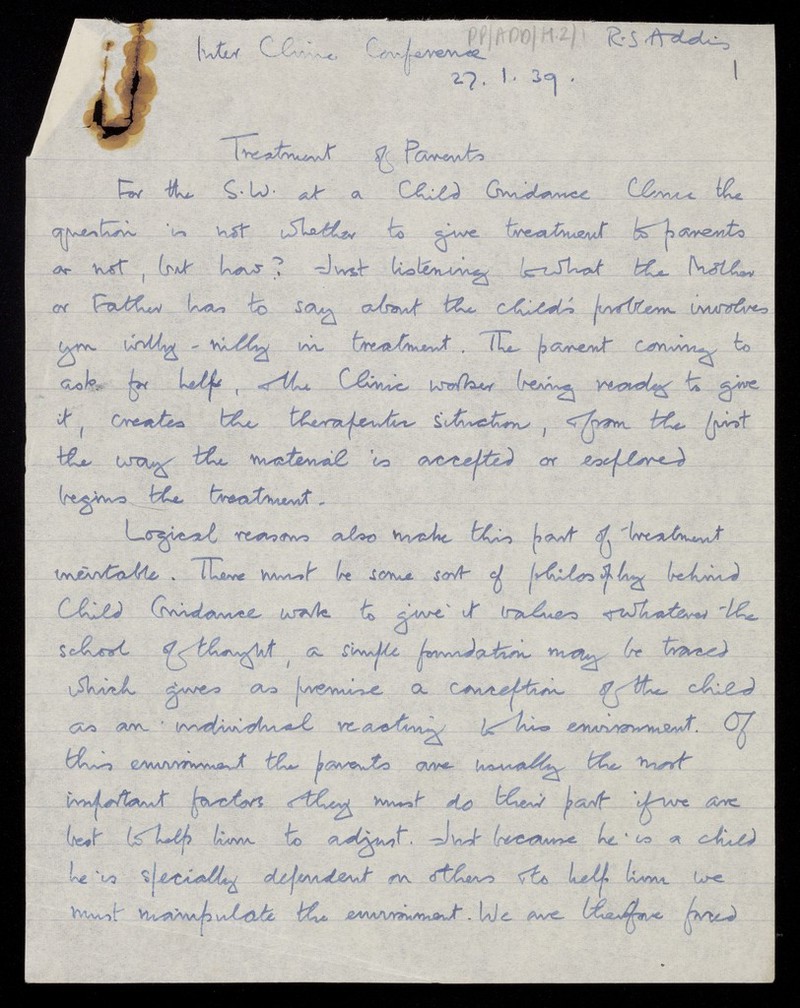 PP/ADD/H.2/1 R.S Addis
Inter Clinic Conference
27.1.39.
1
Treatment of Parents
For the S.W. at a Child Guidance Clinic the
question is not whether to give treatment to parents
or not, but how? Just listening to what the Mother
or Father has to say about the child's problem involves
you willy-nilly in treatment. The parent coming to
ask for help, & the Clinic worker being ready to give
it, creates the therapeutic situation, & from the first
the way the material is accepted or explored
begins the treatment.
Logical reasons also make this part of treatment
inevitable. There must be some sort of philosophy behind
Child Guidance work to give it values & whatever the
school of thought, a simple foundation may be traced
which gives as premise a conception of the child
as an individual reacting to his environment. Of
this environment the parents are usually the most
important factors & they must do their part if we are
best to help him to adjust. Just because he is a child
he is specially dependent on others & to help him we
must manipulate the environment. We are therefore forced